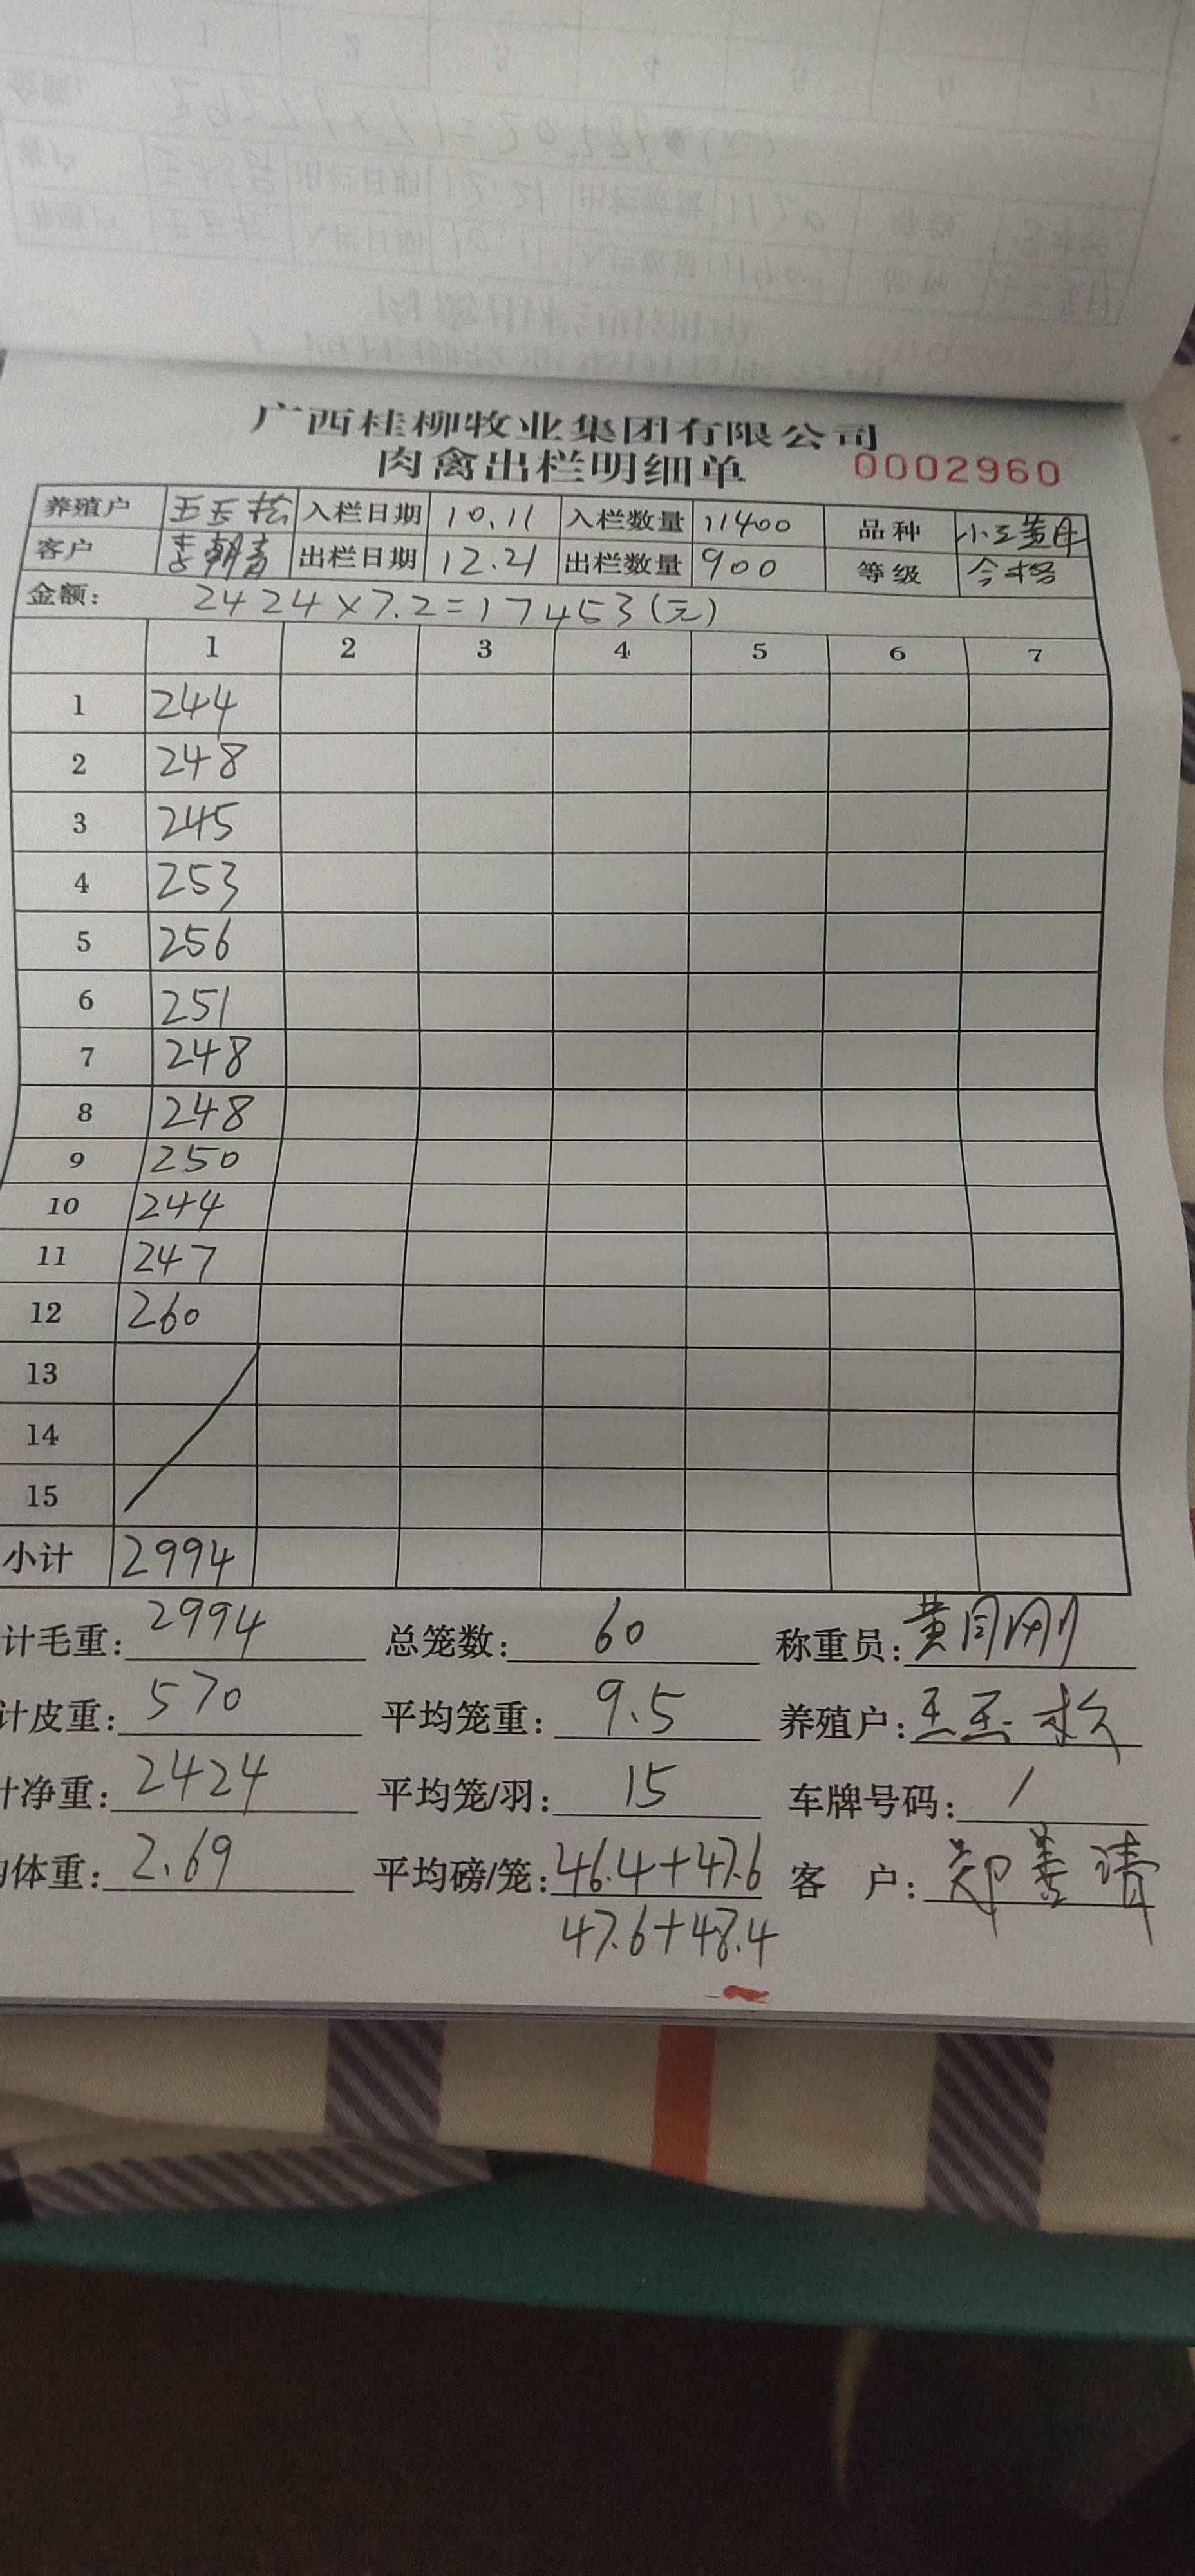 广西桂柳牧业集团有限公司
肉禽出栏明细单 0002960
养殖户 王玉松 入栏日期 10.11 入栏数量 11400 品种
客户 李朝青 出栏日期 12.21 出栏数量 900 等级 合格
金额: 2424×7.2=17453(元)
1 2 3 4 5 6 7
1 244
2 248
3 245
4 253
5 256
6 251
7 248
8 248
9 250
10 244
11 247
12 260
13
14
15
小计 2994
计毛重: 2994 总笼数: 60 称重员: 黄月刚
计皮重: 570 平均笼重: 9.5 养殖户: 王玉松
净重: 2424 平均笼/羽: 15 车牌号码: /
体重: 2.69 平均磅/笼: 46.4+47.6 客 户: 郑善清
47.6+48.4